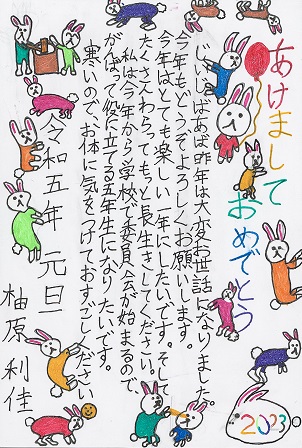 あけまして
おめでとう
じじばあば昨年は大変お世話になりました。
今年もどうぞよろしくお願いします。
今年はとても楽しい一年にしたいです。そして
たくさんわらってもっと長生きしてください。
私は今年から学校で委員会が始まるので、
がんばって役に立てる五年生になりたいです。
寒いので、お体に気をつけておすごしください
令和五年 元旦
柚原 利佳
2023